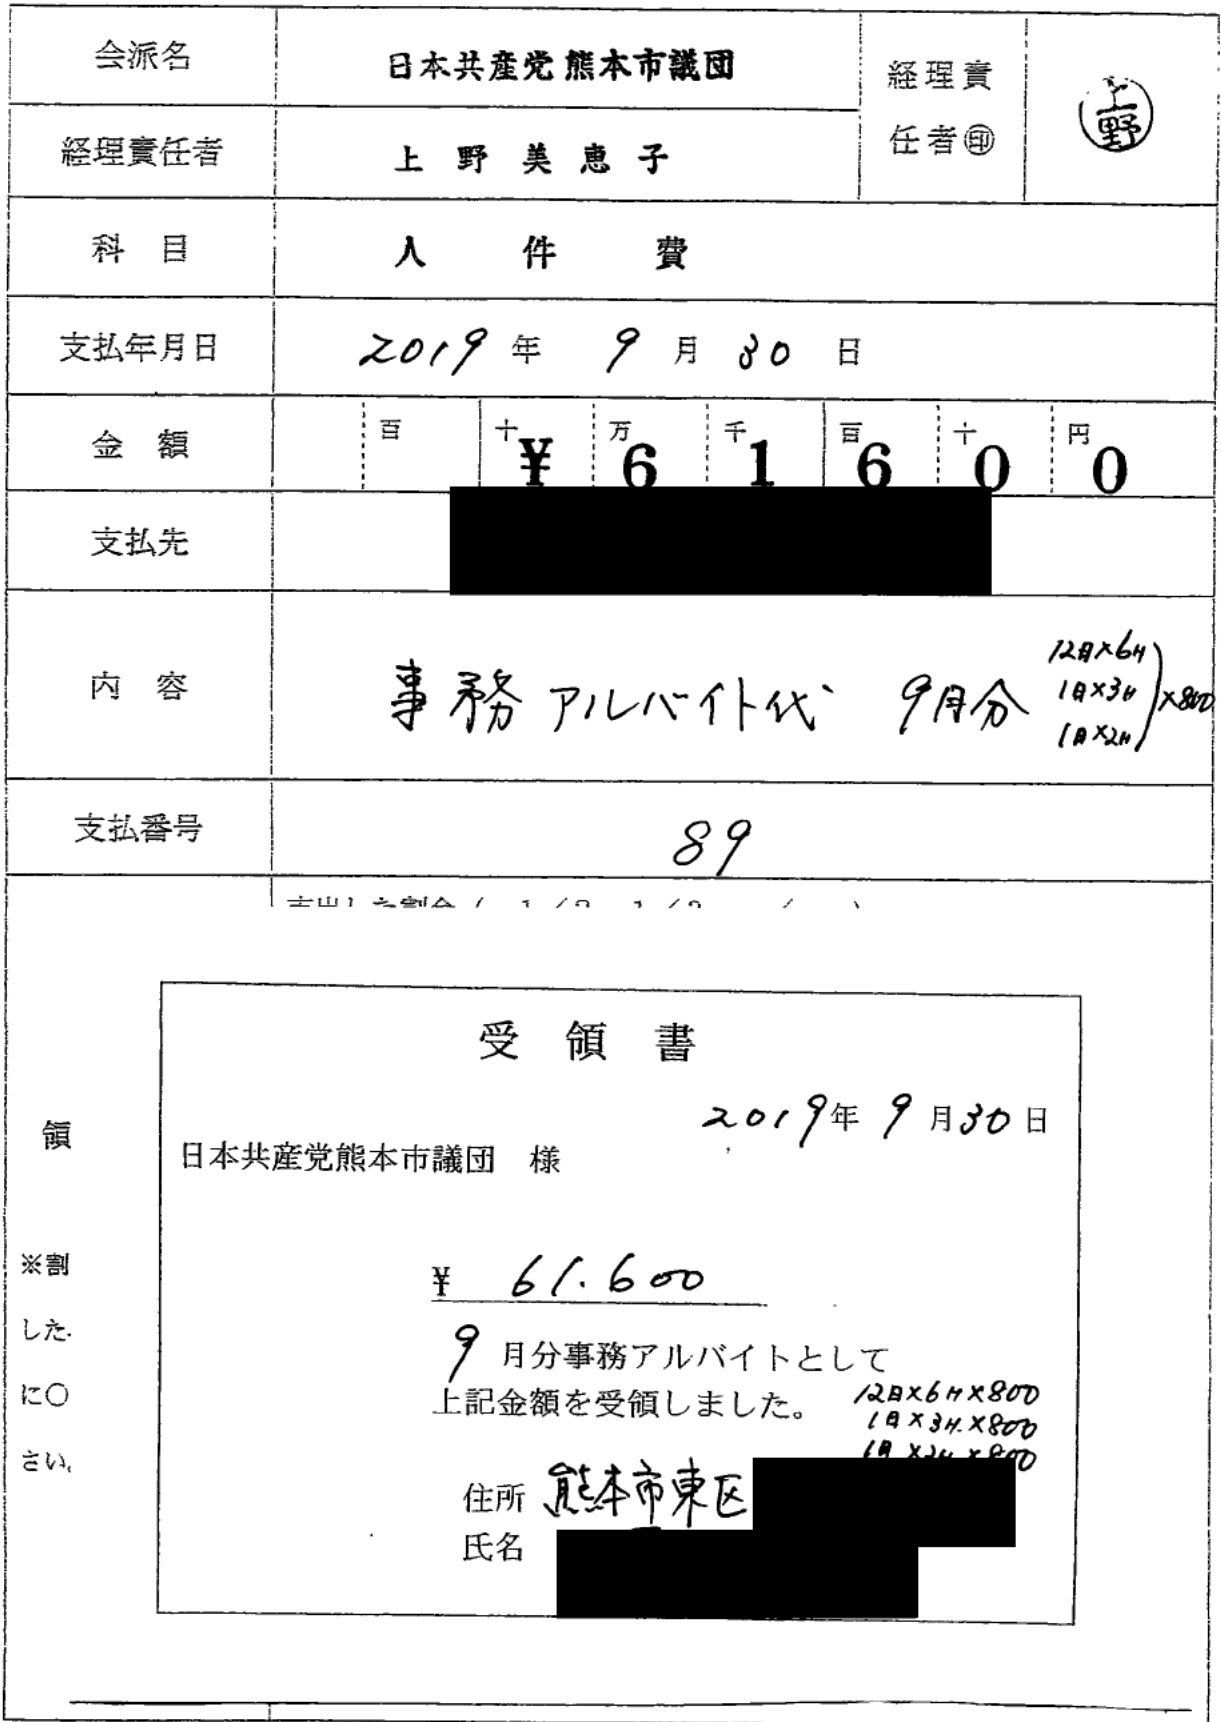 会派名 日本共産党熊本市議団 経理責任者㊞ 上野
経理責任者 上野美恵子
科目 人件費
支払年月日 2019年9月30日
金額 百 十 万 千 百 十 円 ¥61600
支払先
内容 事務アルバイト代 9月分 12日×6H 1日×3H 1日×2H ×800
支払番号 89
受領書
2019年9月30日
日本共産党熊本市議団 様
¥ 61.600
9月分事務アルバイトとして
上記金額を受領しました。
12日×6H×800
1日×3H×800
1日×2H×800
住所 熊本市東区
氏名
領
※割
した
に○
さい。